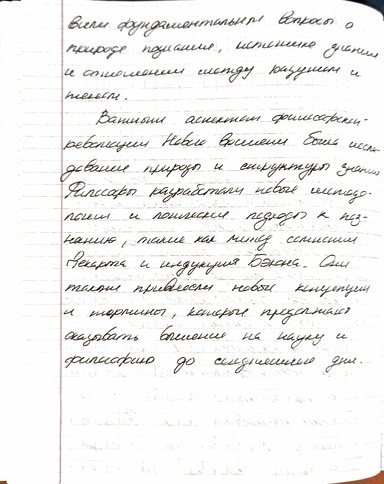 вили фундаментальные вопросы о
природе познания, источнике знания
и отношении между разумом и
телом.
Важным аспектом философской
революции Нового времени было иссле-
дование природы и структуры знания
Философы разработали новые методо-
логии и логические подходы к поз-
нанию, такие как метод сомнения
Декарта и индукция Бэкона. Они
также привнесли новые концепции
и термины, которые продолжают
оказывать влияние на науку и
философию до сегодняшние дни.